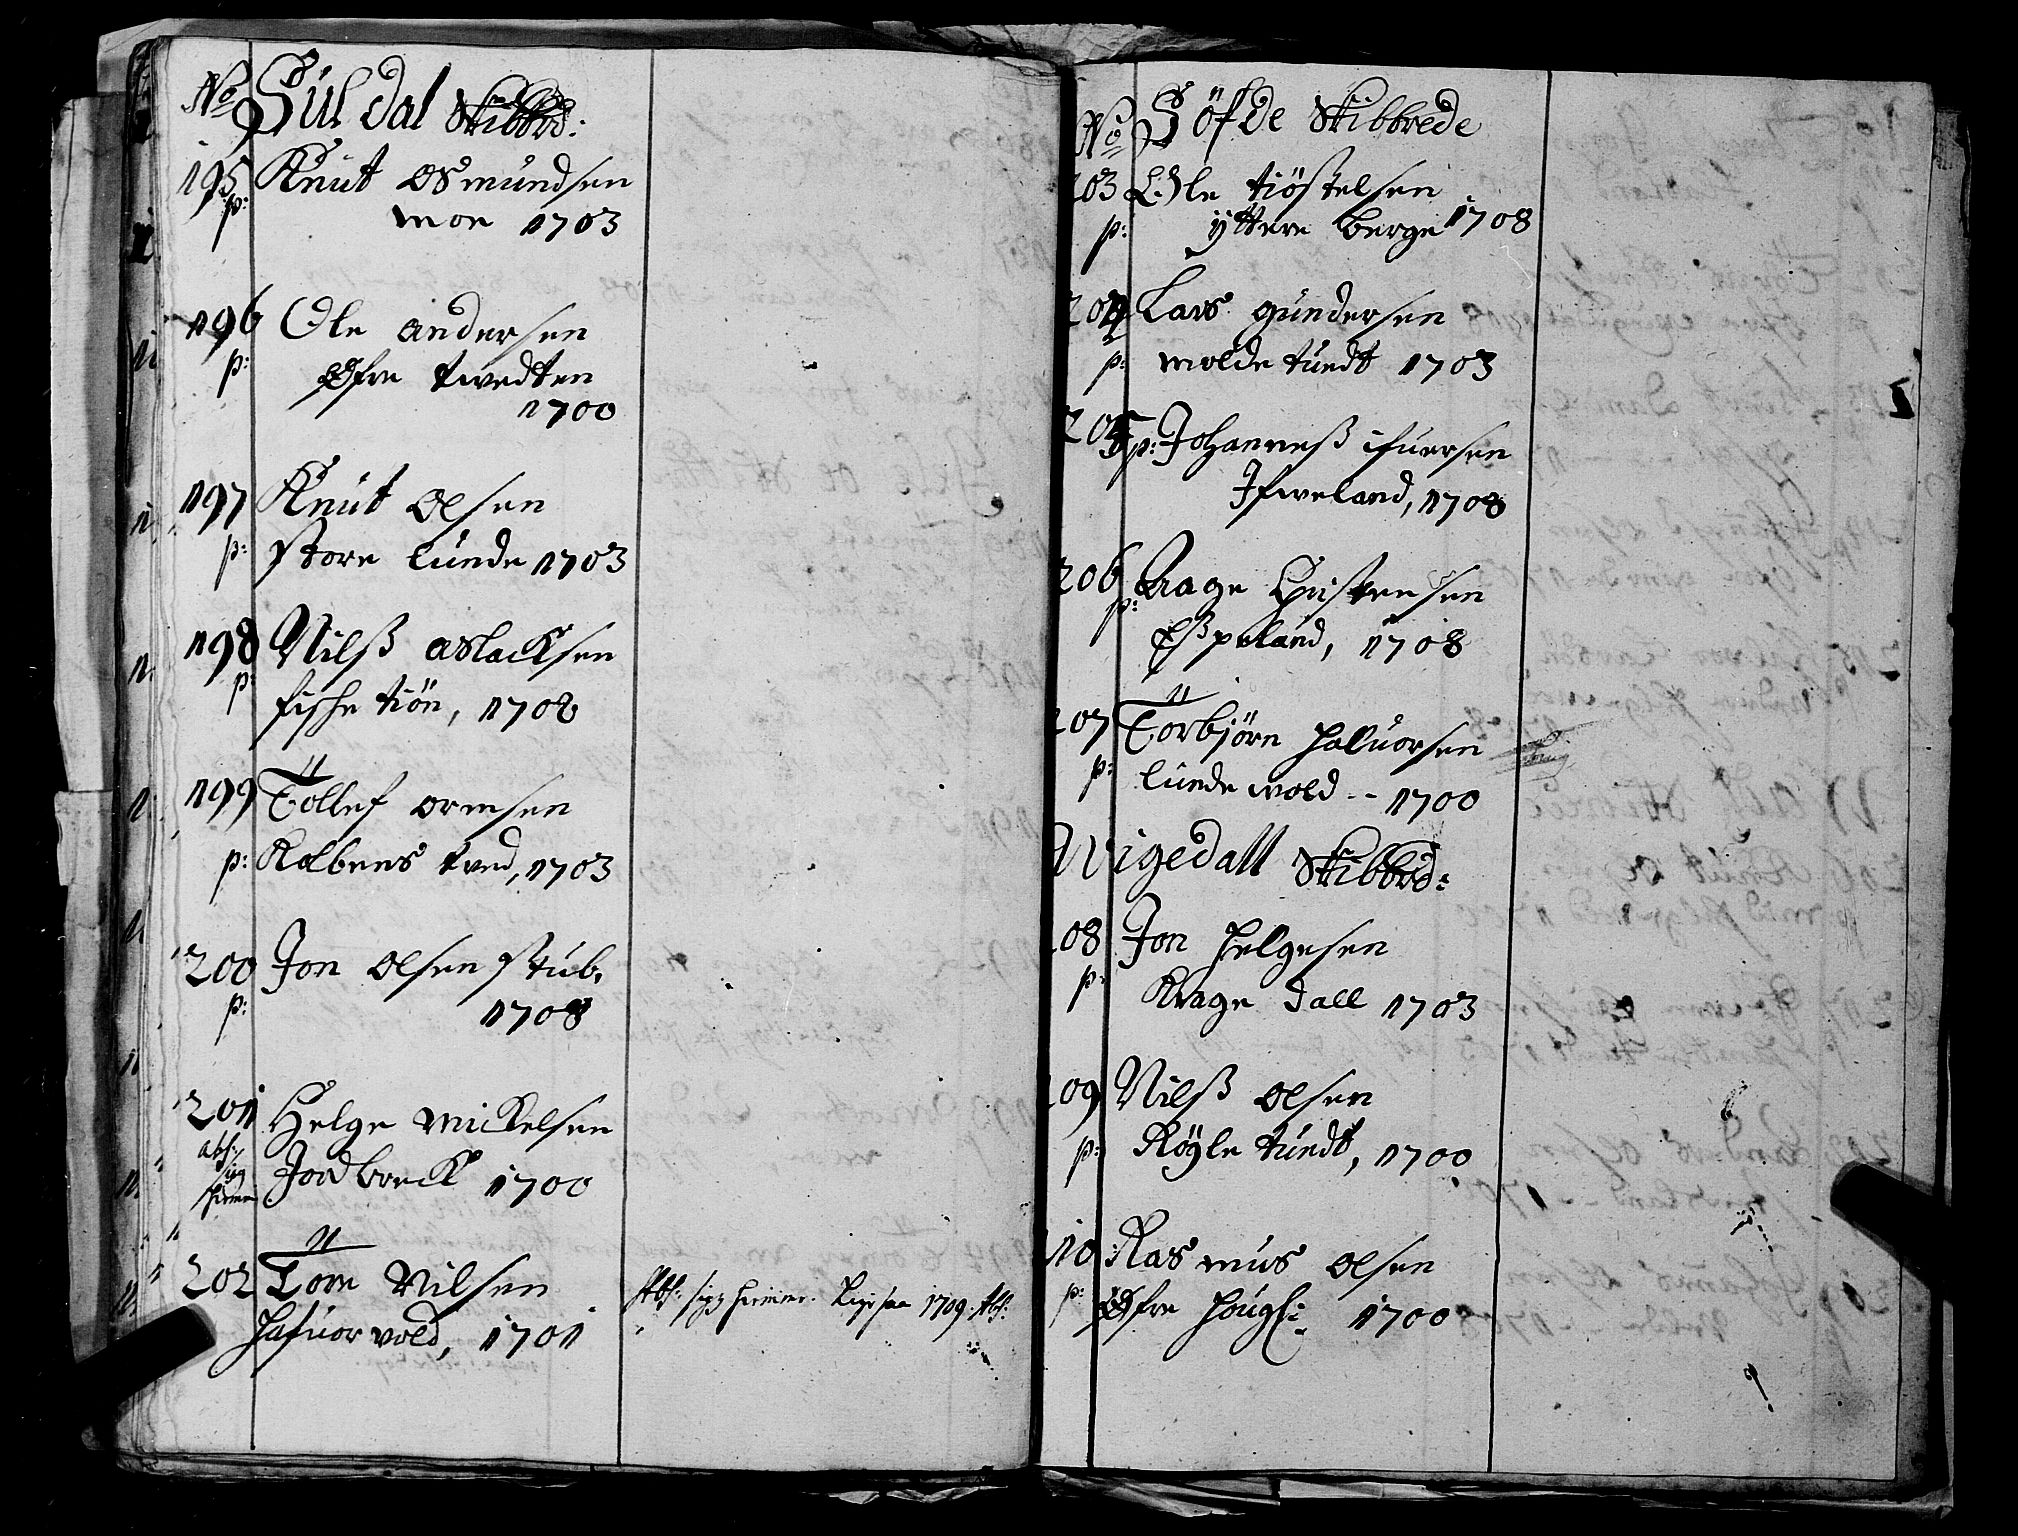 No Suldal Skibbrd:
195 Knut Osmundsen
p: moe 1703
196 Ole andersen
p: Øfre twedten
1700
197 Knut Olsen
p: store lunde 1703
198 Nilß aslacksen
p: fishe tiön, 1708
199 Tollef ormsen
p: Kolbens tved, 1703
200 Jon Olsen stub.
p: 1708
201 Helge Mickelsen
abs: Jordbreck 1700
202 Tore Nilsen
hafuor vold, 1701
1709. Abs:
No Söfde Skibbrede
203 Ole tiöstelsen
p: yttere berge 1708
204 Lars gundersen
p: molde tundt 1703
205 p: Johanneß ifuersen
Ifweland, 1708
206 Aage Christensen
p: Eßpeland, 1708
207 Torbjörn haluorsen
p: lunde wold -- 1700
Wigedall Skibbrd:
208 Jon helgesen
p: Krage dall 1703
209 Nilß olsen
p: Röyle tundt, 1700
210 Rasmus olsen
p: Øfre hougf: 1700